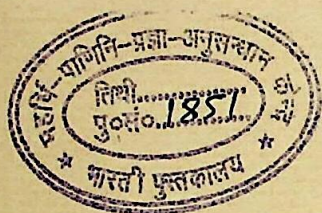 महर्षि-पाणिनि-प्रज्ञा-अनुसन्धान केन्द्र
तिथी..............
पु०सं०.1851
भारती पुस्तकालय